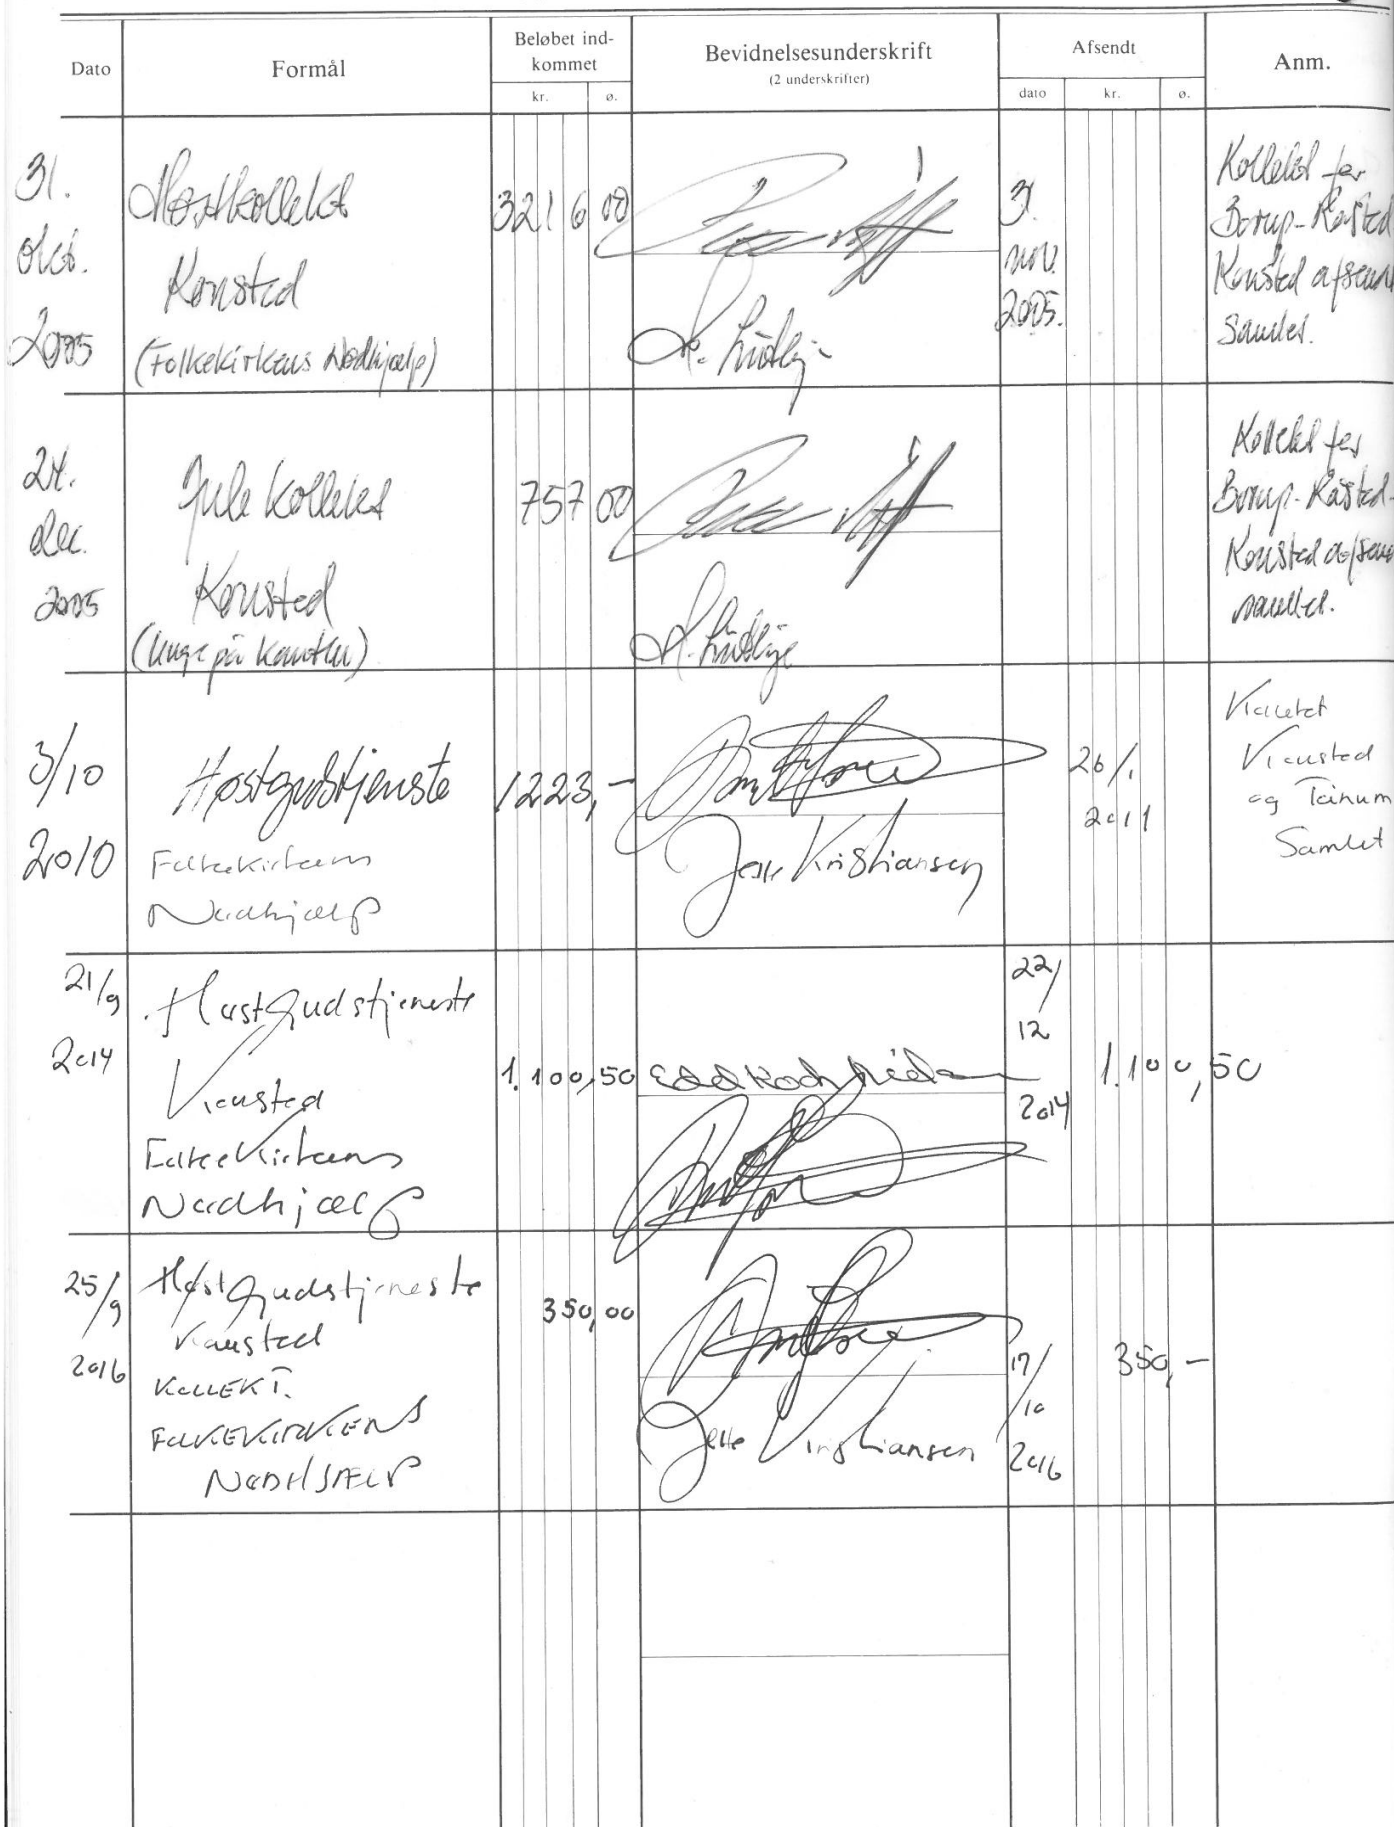 Dato
Formål
Beløbet ind-
kommet
kr. ø.
Bevidnelsesunderskrift
(2 underskrifter)
Afsendt
dato kr. ø.
Anm.
31.
Okt.
2005
Høstkollekt
Kousted
(Folkekirkens Nødhjælp)
3216 00
3.
nov.
2005.
Kollekt for
Borup-Råsted
Kousted afsend
samlet.
24.
dec.
2005
Jule kollekt
Kousted
(Unge på kanten)
757 00
Kollekt for
Borup-Råsted-
Kousted afsen
samlet.
3/10
2010
Høstgudstjenste
Folkekirkens
Nødhjælp
1223,-
Jette Kristiansen
26/1
2011
Kollekt
Kousted
og Tånum
Samlet
21/9
2014
Høstgudstjeneste
Kousted
Folkekirkens
Nødhjælp
1.100,50
Edd Koch Nielsen
22/
12
2014
1.100,50
25/9
2016
Høstgudstjeneste
Kousted
KOLLEKT.
FOLKEKIRKENS
NØDHJÆLP
350,00
Jette Kristiansen
17/
10
2016
350,-